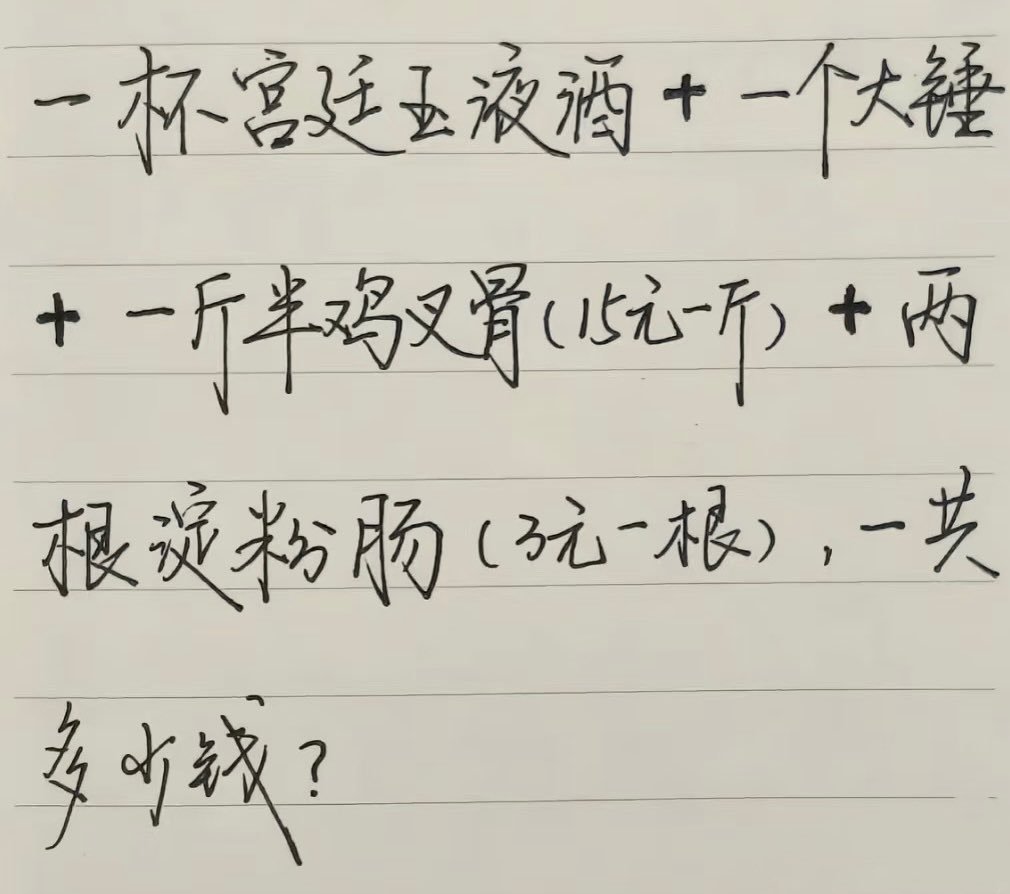 一杯宫廷玉液酒+一个大锤
+一斤半鸡叉骨(15元一斤)+两
根淀粉肠(3元一根),一共
多少钱?